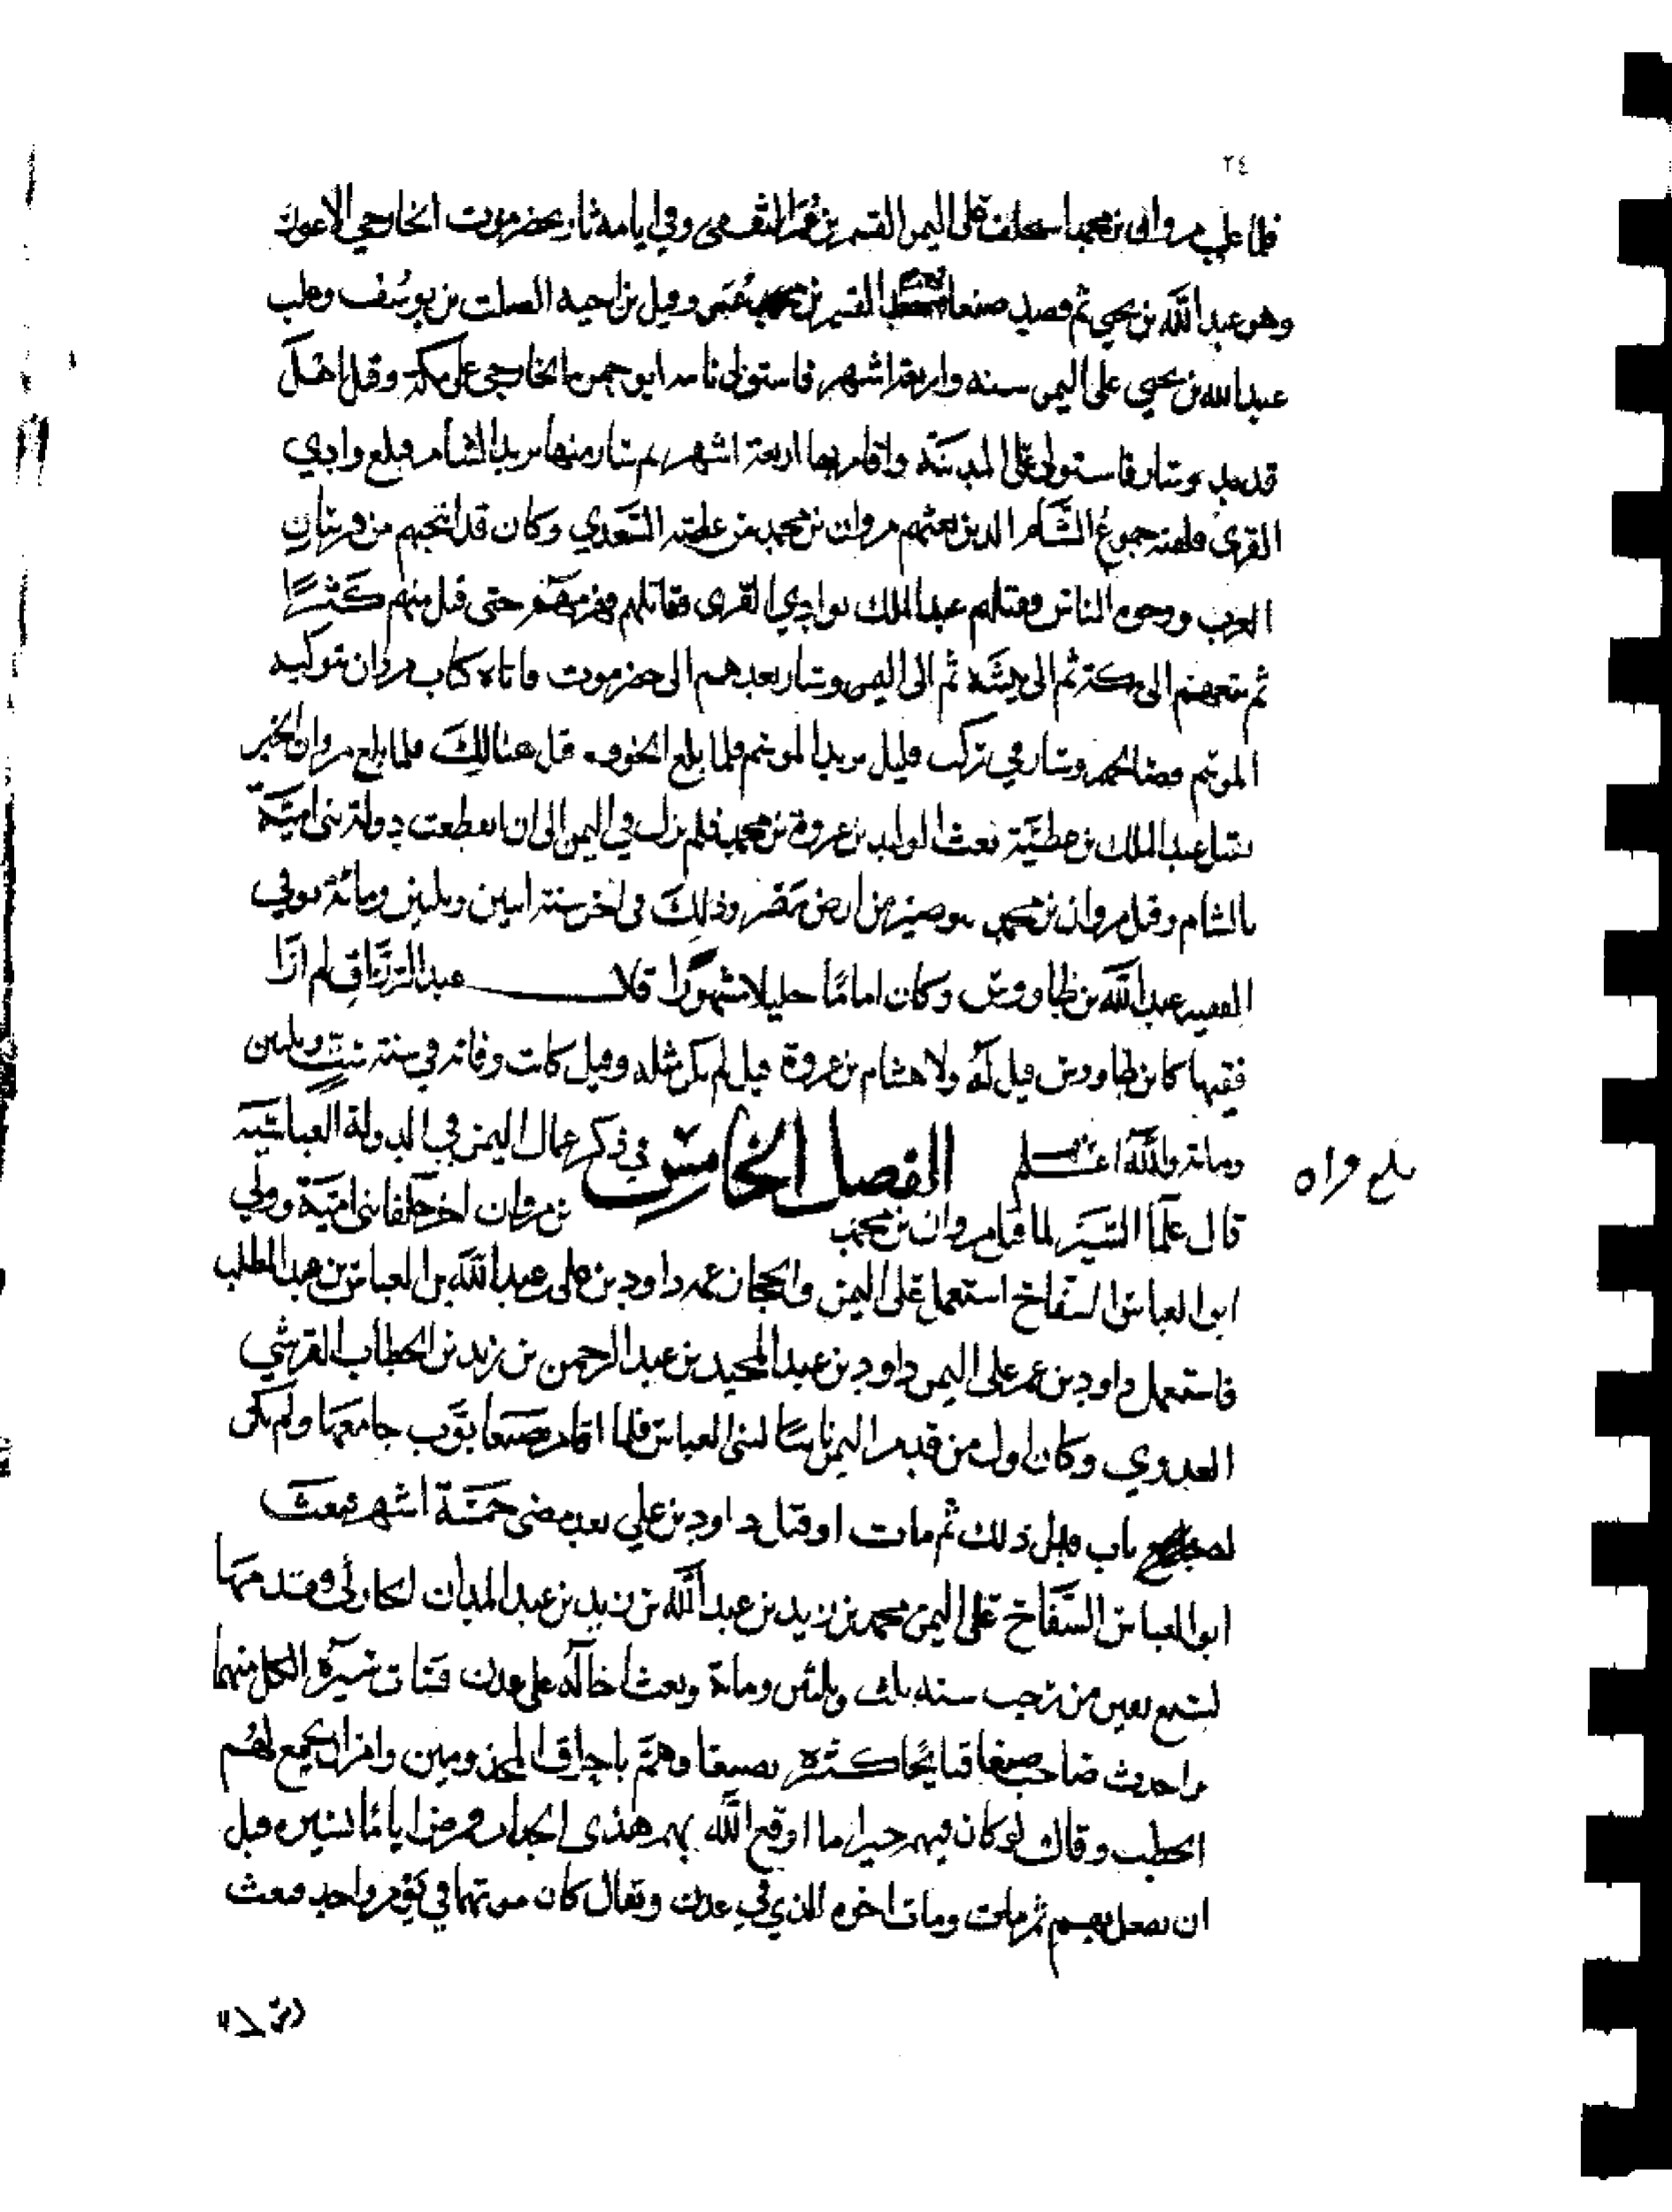 ٢٤
فلما غلب مروان بن محمد استخلف على اليمن القسم بن عمر الثقفي وفي ايامه ثار بحضرموت الخارجي الاعور
وهو عبد الله بن يحيى ثم قصد صنعا القسم بن عمر وقيل بن اخيه الصلت بن يوسف وغلب
عبد الله بن يحيى على اليمن سنه واربعة اشهر فاستولى نا ابو حمزه الخارجي على مكة وقتل اهل
قديد وسار فاستولى على المدينة واقام بها اربعة اشهر ثم سار منها يريد الشام فبلغ وادي
القرى فلقيه جموع الشام الذين بعثهم مروان بن محمد بن عطية السعدي وكان قد انتخبهم من فرسان
العرب ووجوه الناس فلقيهم عبد الملك بوادي القرى فقاتلهم فهزمهم حتى قتل منهم كثيرا
ثم تبعهم الى مكة ثم الى ثم الى اليمن وسار بعدهم الى حضرموت فاتاه كتاب مروان بتوليه
الموسم فصالحهم وسار في ركب قليل يريد الموسم فلما بلغ الجوف قتل هنالك فلما بلغ مروان الخبر
بقتل عبد الملك بن عطية بعث الوليد بن عروة بن محمد فلم يزل في اليمن الى ان انقطعت دولة بني امية
بالشام وقتل مروان بن محمد ببوصير من ارض مصر وذلك في اخر سنة اثنين وثلثين ومائة توفي
الفقيه عبد الله بن طاووس وكان اماما جليلا مشهورا قال عبد الرزاق لم ار
فقيها كابن طاووس قيل له ولا هشام بن عروة قيل لم يكن مثله وقيل كانت وفاته في سنة ست وثلثين
وماية والله اعلم الفصل الخامس في ذكر عمال اليمن في الدولة العباسية
بلغ قراه
قال علما السير لما قتل مروان بن محمد بن مروان اخر خلفا بني امية وولي
ابو العباس السفاح استعمل على اليمن والحجاز عمه داود بن علي بن عبد الله بن العباس بن عبد المطلب
فاستعمل داود بن عمر على اليمن داود بن عبد المجيد بن عبد الرحمن بن زيد بن الخطاب القرشي
العدوي وكان اول من قدم اليمن نايبا لبني العباس فلما اقام بصنعا بوب جامعها ولم يكن
باب قبل ذلك ثم مات او قتل داود بن علي بعد مضي خمسة اشهر فبعث
ابو العباس السفاح على اليمن محمد بن زيد بن عبد الله بن زيد بن عبد المدان الحارثي فقدمها
لسبع بقين من رجب سنه ثلث وثلثين وماية وبعث اخا له على عدن فسات سيرة الكل منهما
واحدث صاحب صنعا قبايحا كثيرة بصنعا وهم باحراق المجذومين وامر ان يجمع لهم
الحطب وقال لو كان فيهم خيرا ما اوقع الله بهم هذى الجدام ومرض اياما يسيره قبل
ان يفعل بهم ثم مات ومات اخوه الذي في عدن ويقال كان موتهما في يوم واحد فبعث